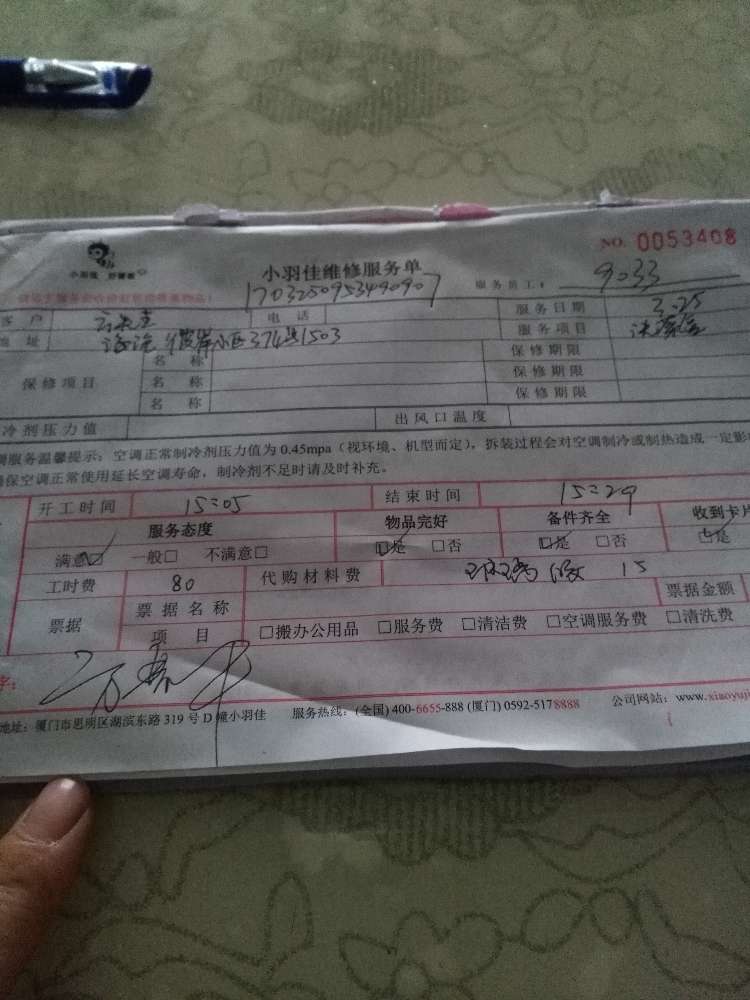 NO. 0053408
小羽佳 好管家
小羽佳维修服务单
1703250953490907
服务员工: 9033
客户
电话
服务日期 3.25
地址 小区374号1503
服务项目
保修项目
名称
名称
名称
保修期限
保修期限
保修期限
冷剂压力值
出风口温度
调服务温馨提示: 空调正常制冷剂压力值为 0.45mpa (视环境、机型而定), 拆装过程会对空调制冷或制热造成一定影
确保空调正常使用延长空调寿命, 制冷剂不足时请及时补充。
开工时间 15:05 结束时间 15:29
服务态度 物品完好 备件齐全 收到卡片
满意☑ 一般□ 不满意□ ☑是 □否 ☑是 □否 ☑是
工时费 80 代购材料费 玻璃胶 15
票据 票据名称 票据金额
项目 □搬办公用品 □服务费 □清洁费 □空调服务费 □清洗费
字:
地址: 厦门市思明区湖滨东路 319 号 D 幢小羽佳 服务热线: (全国) 400-6655-888 (厦门) 0592-5178888 公司网站: www.xiaoyuji